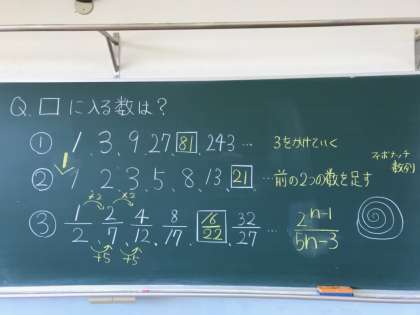 Q. □ に入る数は？
① 1, 3, 9, 27, 81, 243 … 3をかけていく
② 1, 2, 3, 5, 8, 13, 21 … 前の2つの数を足す フィボナッチ数列
1
③ 1/2, 2/7, 4/12, 8/17, 16/22, 32/27 … 2^(n-1)/(5n-3)
×2 ×2
+5 +5